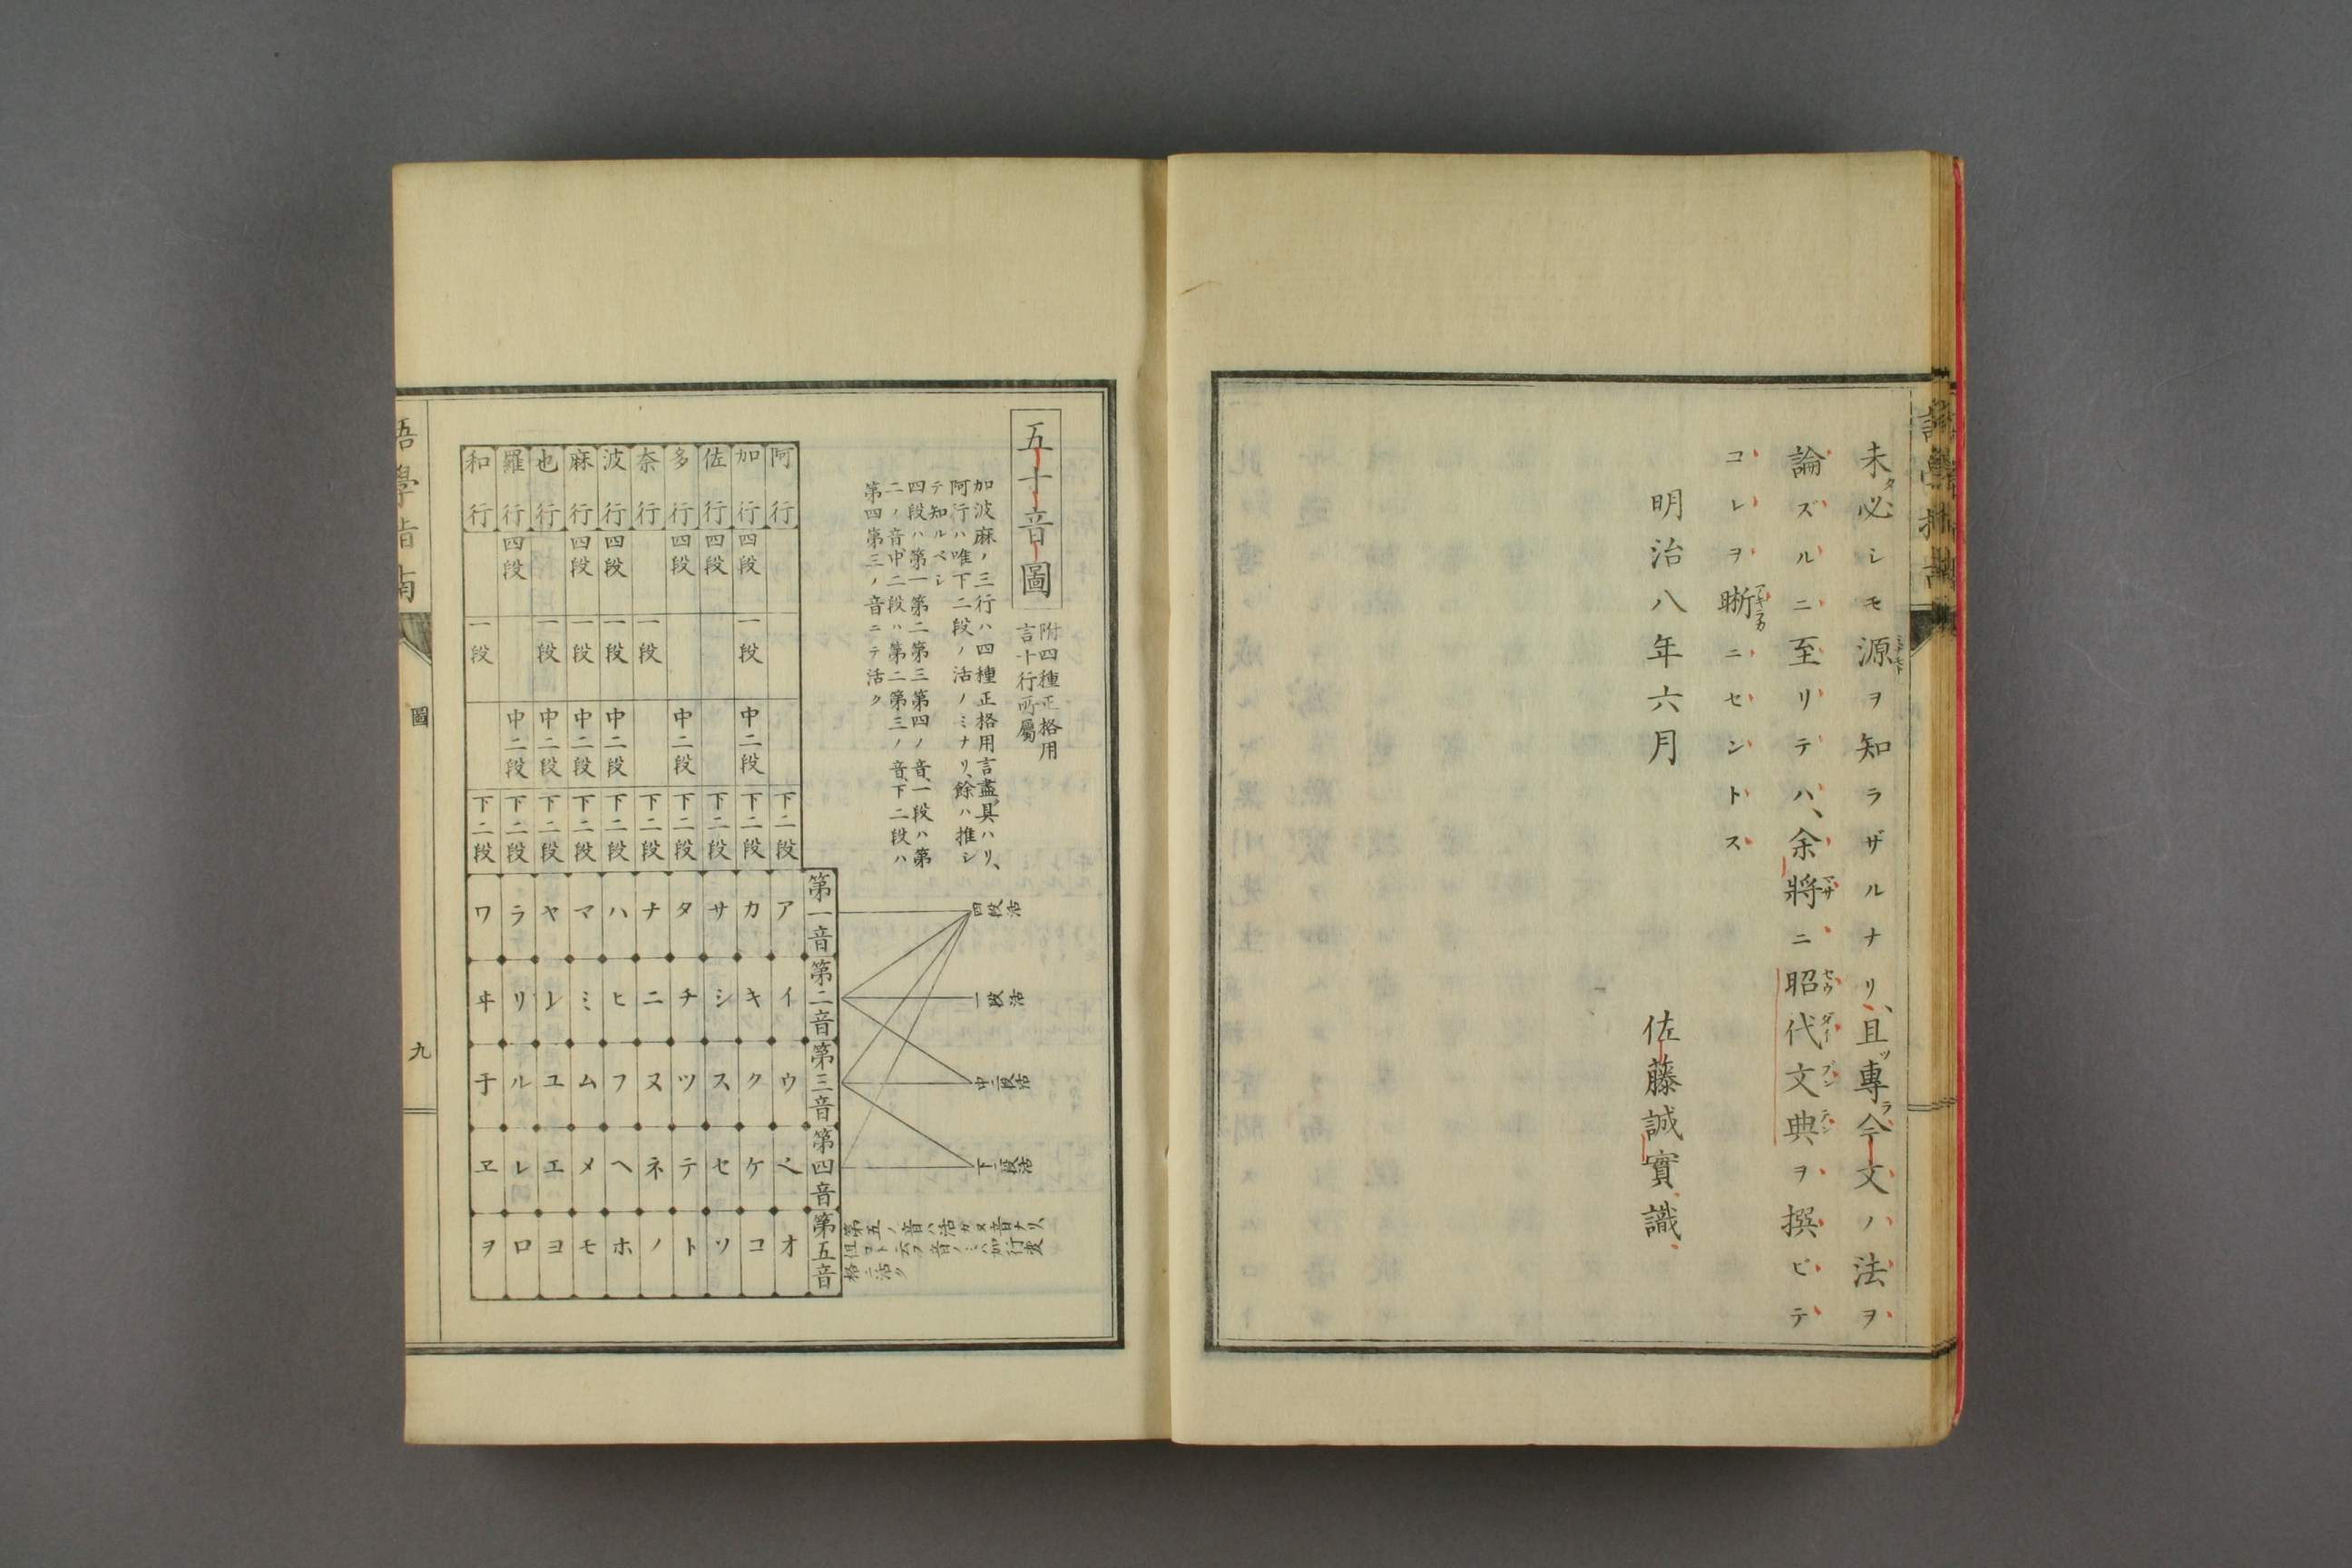 未必シモ源ヲ知ラザルナリ、且專今文ノ法ヲ
論ズルニ至リテハ、余將ニ昭代文典ヲ撰ビテ
コレヲ晣ニセントス
明治八年六月
佐藤誠實識
五十音圖
附四種正格用
言十行所屬
加波麻ノ三行ハ四種正格用言盡具ハリ、
阿行ハ唯下二段ノ活ノミナリ、餘ハ推シ
テ知ルベシ
四段ハ第一第二第三第四ノ音、一段ハ第
二ノ音、中二段ハ第二第三ノ音、下二段ハ
第四第三ノ音ニテ活ク
四段活
一段活
中二段活
下二段活
第一音 第二音 第三音 第四音 第五音
阿行 下二段 ア イ ウ オ
加行 四段 一段 中二段 下二段 カ キ ク ケ コ
佐行 四段 下二段 サ シ ス セ ソ
多行 四段 中二段 下二段 タ チ ツ テ ト
奈行 一段 下二段 ナ ニ ヌ ネ ノ
波行 四段 一段 中二段 下二段 ハ ヒ フ ヘ ホ
麻行 四段 一段 中二段 下二段 マ ミ ム メ モ
也行 一段 中二段 下二段 ヤ ユ エ ヨ
羅行 四段 中二段 下二段 ラ リ ル レ ロ
和行 一段 下二段 ワ ヰ 于 ヱ ヲ
第五ノ音ハ活カヌ音ナリ
語學指南
圖
九